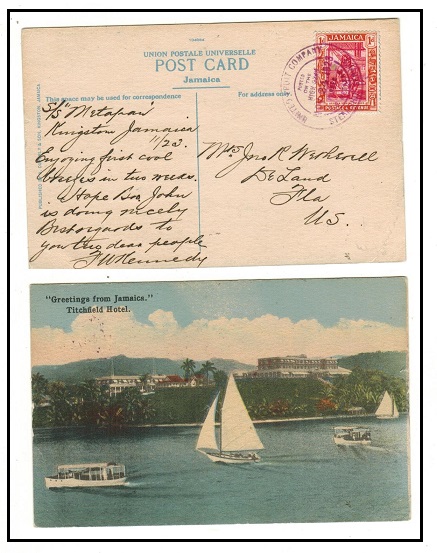 UNION POSTALE UNIVERSELLE
POST CARD
Jamaica
This space may be used for correspondence
For address only
JAMAICA
UNITED FRUIT COMPANY
S/S "Metapan"
Kingston Jamaica
11/23.
Enjoying first cool
in two weeks.
Hope Bro. John
is doing nicely
Best regards to
you two dear people
F W Kennedy
Mrs Jno R
De Land
Fla
U.S.
"Greetings from Jamaica."
Titchfield Hotel.